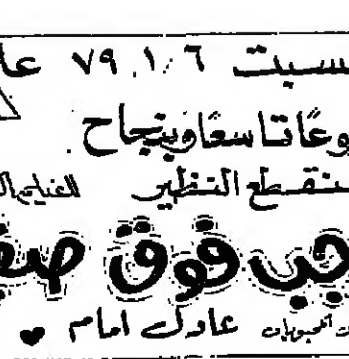 السبت ٧٩.١.٦ علـ
وعًا تاسعًا وبنجاح
منقطع النظير للفيلم الـ
حب فوق هضـ
عادل امام